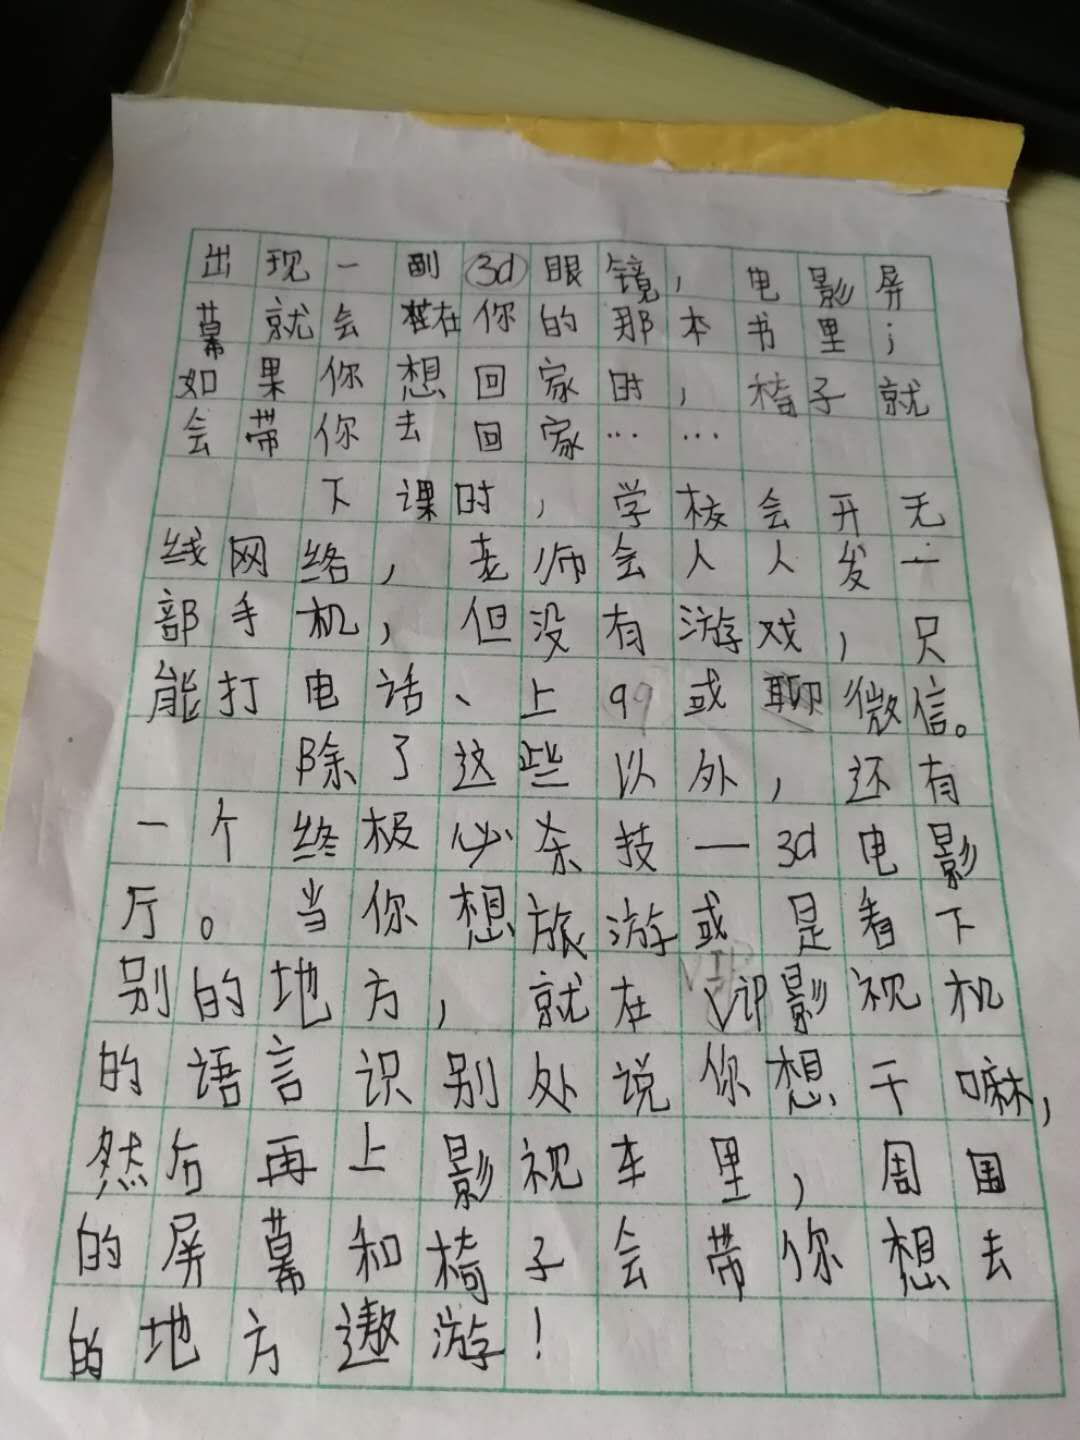 出现一副3d眼镜，电影屏
幕就会在你的那本书里；
如果你想回家时，椅子就
会带你去回家……
下课时，学校会开无
线网络，老师会人人发一
部手机，但没有游戏，只
能打电话、上qq或聊微信。
除了这些以外，还有
一个终极必杀技—3d电影
厅。当你想旅游或是看下
别的地方，就在VIP影视机
的语言识别处说你想干嘛，
然后再上影视车里，周围
的屏幕和椅子会带你想去
的地方遨游！